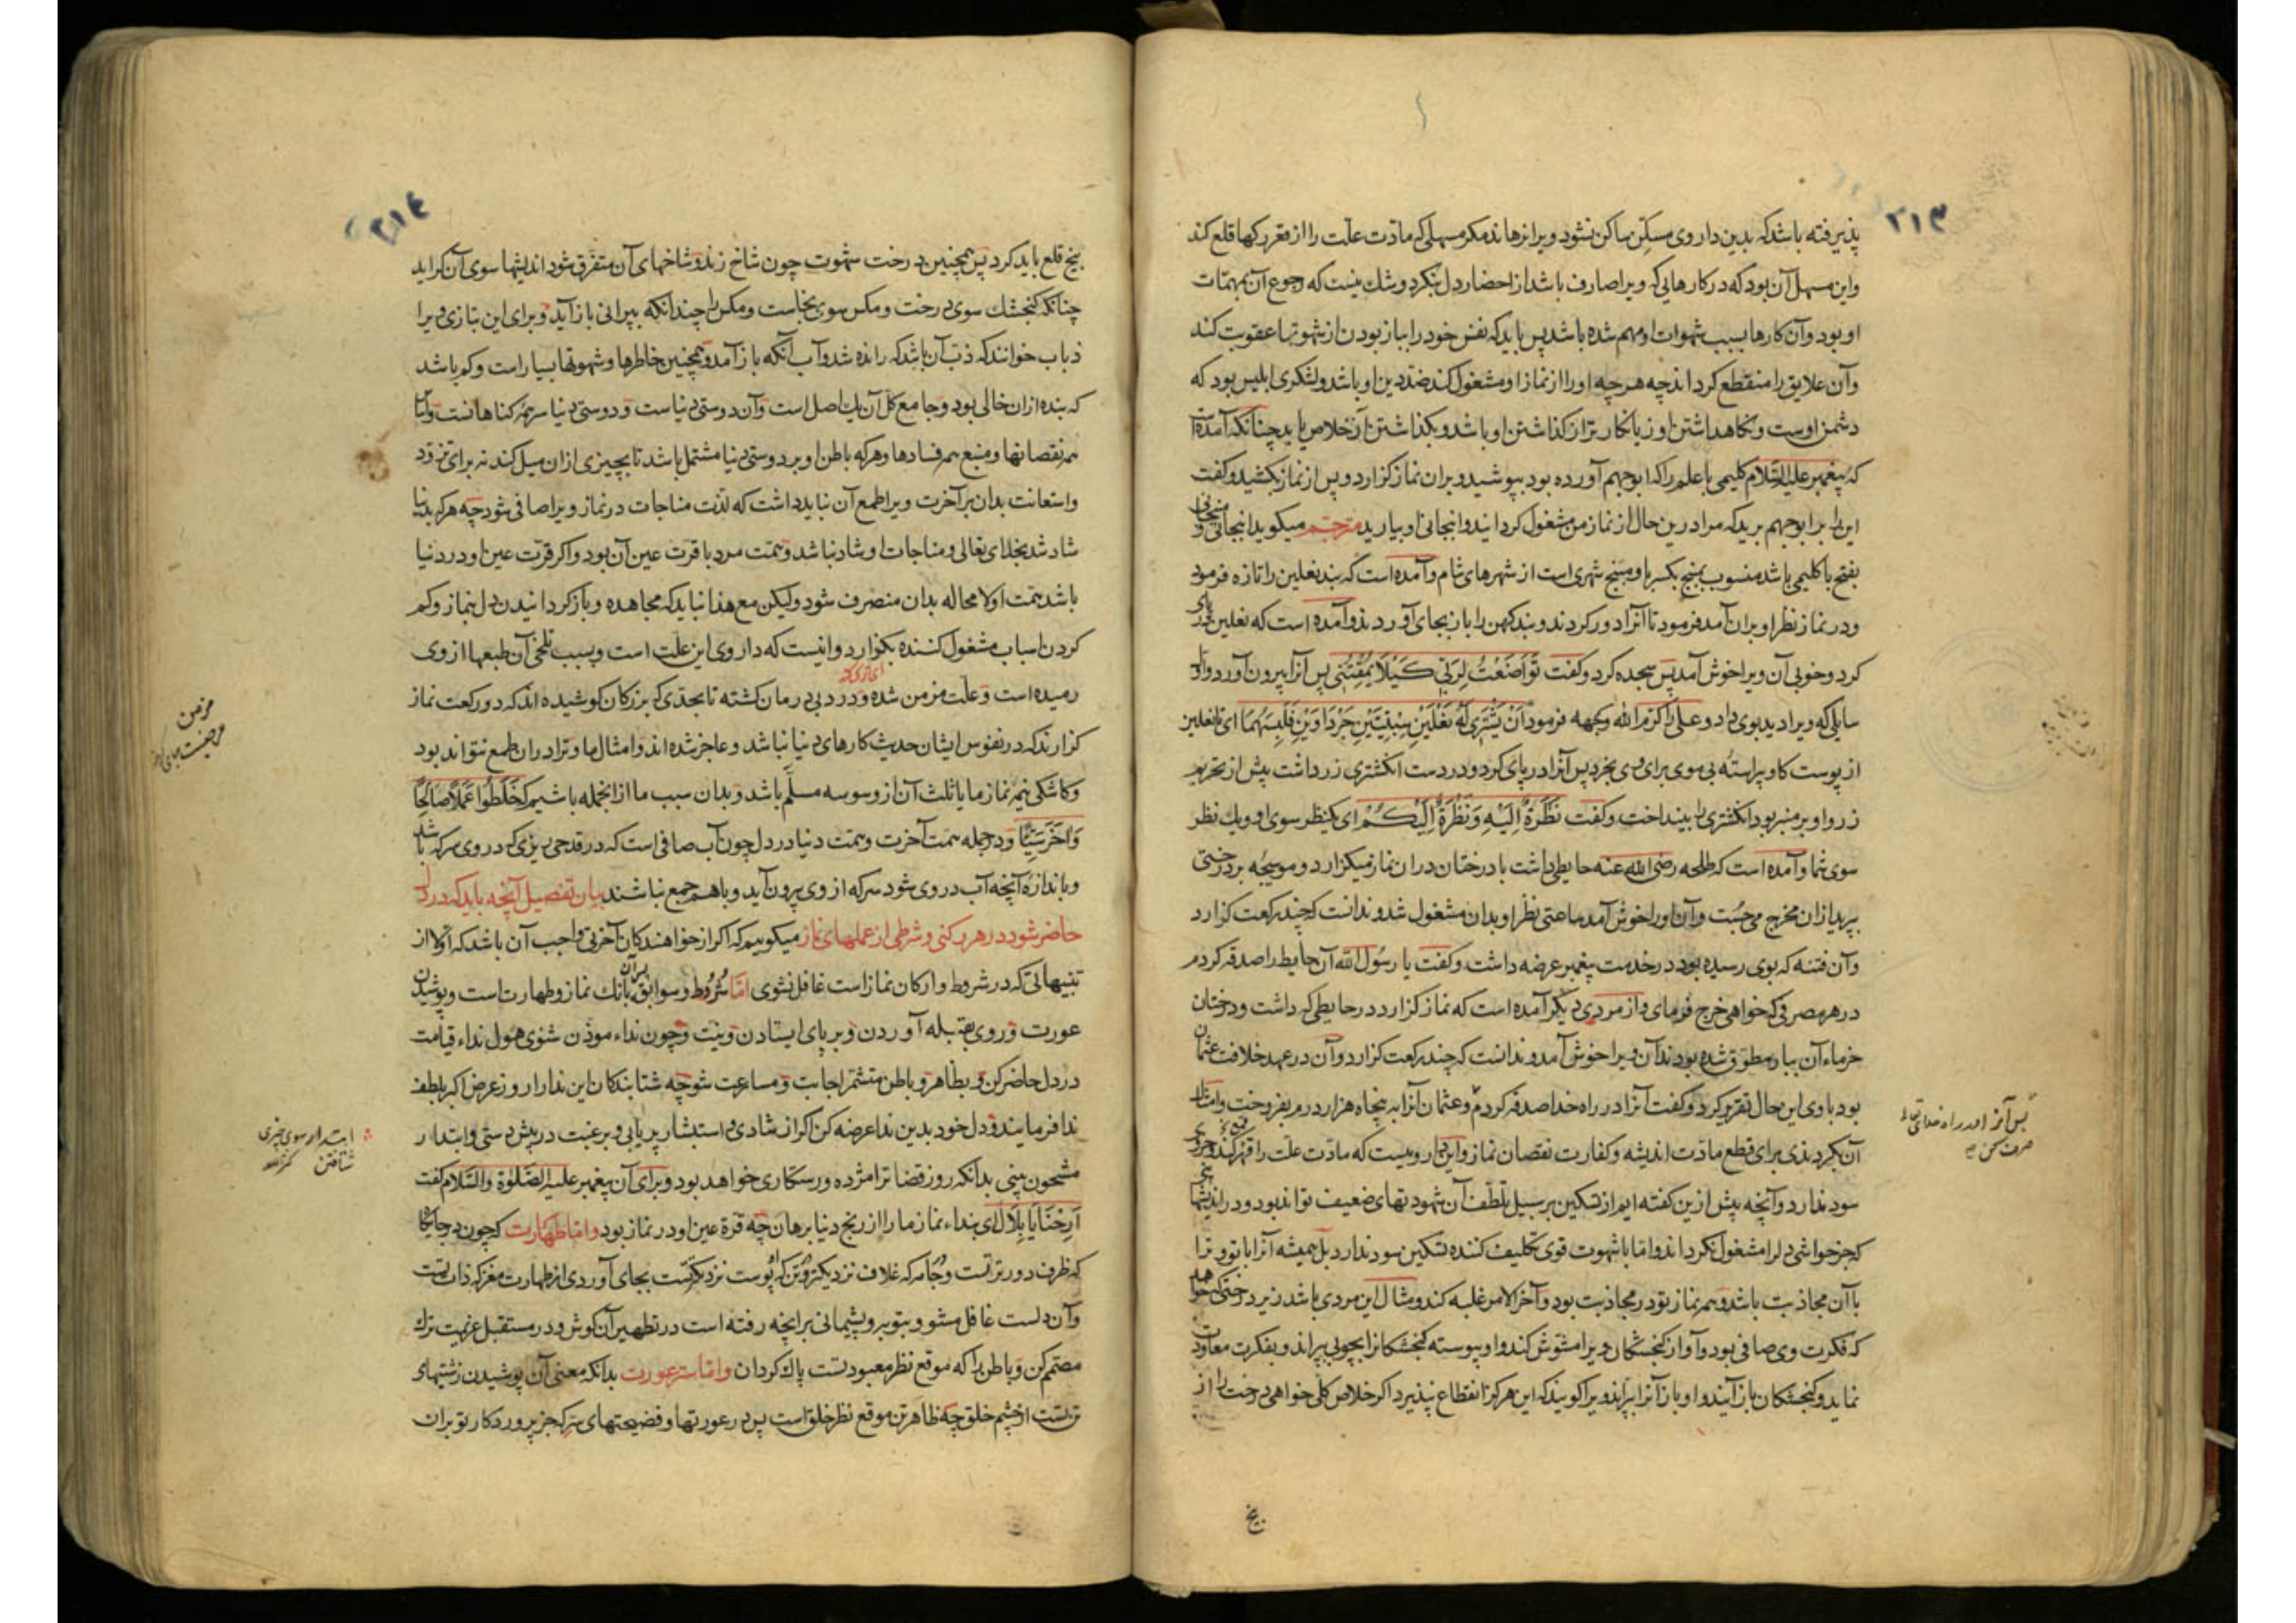 ۲۱۳
پذیرفته باشد که بدین داروی مسکن ساکن نشود ویرا نرهاند مکر مسهلی که مادت علت را از مقر رکها قلع کند
واین مسهل آن بود که در کارهایی که ویرا صارف باشد از احضار دل بنکرد وشك نیست که رجوع آن بمهمات
او بود وآن کارها بسبب شهوات او مهم شده باشد پس باید که نفس خود را بباز بودن از شهوتها عقوبت کند
وآن علایق را منقطع کرداند چه هرچه او را از نماز او مشغول کند ضد دین او باشد ولشکری ابلیس بود که
دشمن اوست ونکاهداشتن او زیانکارتر از کذاشتن او باشد وبکذاشتن از آن خلاص یابد چنانکه آمده است
که پیغمبر علیه السلام کلیمی با علم را که ابوجهم آورده بود بپوشید وبران نماز کزارد وپس از نماز بکشید وکفت
این را بر ابوجهم برید که مرا درین حال از نماز من مشغول کردانید وانبجانی او بیارید مترجم میکوید انبجانی و منبجانی
بفتح با کلیمی باشد منسوب بمنبج بکسر با ومنبج شهری است از شهرهای شام وآمده است که بند نعلین را تازه فرمود
ودر نماز نظر او بران آمد فرمود تا آنرا دور کردند وبند کهن را باز بجای آوردند وآمده است که نعلین در پای
کرد وخوبی آن ویرا خوش آمد پس سجده کرد وکفت تَوَاضَعْتُ لِرَبِّی کَیْلَا یَمْقُتَنِی پس آنرا بیرون آورد واول
سایلی که ویرا دید بوی داد وعلی را کرم الله وجهه فرمود اَنْ یَشْتَرِیَ لَهُ نَعْلَیْنِ سِبْتِیَّتَیْنِ جَرْدَاوَیْنِ فَلَبِسَهُمَا ای نعلین
از پوست کاو پیراسته بی موی برای وی بخرد پس آنرا در پای کرد ودر دست انکشتری زر داشت پیش از تحریم
زر واو بر منبر بود انکشتری را بینداخت وکفت نَظْرَةٌ اِلَیْهِ وَنَظْرَةٌ اِلَیْکُمْ ای یکنظر سوی او ویك نظر
سوی شما وآمده است که طلحه رضی الله عنه حایطی داشت با درختان دران نماز میکزارد وموسیجه بر درختی
بپرید ازان مخرج می جست وآن او را خوش آمد ساعتی نظر او بدان مشغول شد وندانست که چند رکعت کزارد
وآن فتنه که بوی رسیده بود در خدمت پیغمبر عرضه داشت وکفت یا رسول الله آن حایط را صدقه کردم
در هر مصرفی که خواهی خرج فرمای واز مردی دیکر آمده است که نماز کزارد در حایطی که داشت ودرختان
خرماء آن ببار مطوق شده بودند آن ویرا خوش آمد وندانست که چند رکعت کزارد وآن در عهد خلافت عثمان
بود با وی این حال تقریر کرد وکفت آنرا در راه خدا صدقه کردم وعثمان آنرا به پنجاه هزار درم بفروخت وامثال
آن بکردندی برای قطع مادت اندیشه وکفارت نقصان نماز واین دارویست که مادت علت را قهر کند وجز وی
سود ندارد وآنچه پیش ازین کفته ایم از تسکین بر سبیل تلطف آن شهوتهای ضعیف تواند بود ودر اندیشها
که جز حواشی دل را مشغول نکرداند واما با شهوت قوی تکلیف کننده تسکین سود ندارد بل همیشه آنرا با تو وترا
با آن مجاذبت باشد وهمه نماز تو در مجاذبت بود وآخر الامر غلبه کند ومثال این مردی باشد زیر درختی که خواهد
که فکرت وی صافی بود وآواز کنجشکان ویرا مشوش کند واو پیوسته کنجشکانرا بچوبی بپراند وبفکرت معاودت
نماید وکنجشکان باز آیند واو باز آنرا بپراند ویرا کویند که این هرکز انقطاع نپذیرد اکر خلاص کلی خواهی درخت را از
بیخ
پس آنرا در راه خدای تعالی
صرف کن
۲۱۴
بیخ قلع باید کرد پس همچنین درخت شهوت چون شاخ زند وشاخهای آن متفرق شود اندیشها سوی آن کراید
چنانکه کنجشك سوی درخت ومکس سوی نجاست ومکس را چندانکه بپرانی باز آید وبرای این بتازی ویرا
ذباب خوانند که ذب آن باشد که رانده شد وآب آنکه باز آمد وهمچنین خاطرها وشهوتها بسیار است وکم باشد
که بنده ازان خالی بود وجامع کل آن یك اصل است وآن دوستی دنیاست ودوستی دنیا سر همه کناهانست واساس
همه نقصانها ومنبع همه فسادها وهرکه باطن او بر دوستی دنیا مشتمل باشد تا بچیزی ازان میل کند نه برای تزود
واستعانت بدان بر آخرت ویرا طمع آن نباید داشت که لذت مناجات در نماز ویرا صافی شود چه هرکه بدنیا
شاد شد بخدای تعالی ومناجات او شاد نباشد وهمت مرد با قرت عین آن بود واکر قرت عین او در دنیا
باشد همت او لا محاله بدان منصرف شود ولیکن مع هذا نباید که مجاهده وباز کردانیدن دل بنماز وکم
کردن اسباب مشغول کننده بکذارد وانیست که داروی این علت است وبسبب تلخی آن طبعها از وی
رمیده است وعلت مزمن شده ودرد بی درمان کشته تا بحدی که بزرکان کوشیده اند که دو رکعت نماز
کزارند که در نفوس ایشان حدیث کارهای دنیا نباشد وعاجز شده اند وامثال ما وترا دران طمع نتواند بود
وکاشکی نیمه نماز ما یا ثلث آن از وسوسه مسلم باشد وبدان سبب ما از انجمله باشیم که خَلَطُوا عَمَلًا صَالِحًا
وَاٰخَرَ سَیِّئًا ودر جمله همت آخرت وهمت دنیا در دل چون آب صافی است که در قدحی ریزی که در وی سرکه باشد
وباندازه آنچه آب در وی شود سرکه از وی بیرون آید وباهم جمع نباشند بیان تفصیل آنچه باید که در دل
حاضر شود در هر رکنی وشرطی از عملهای نماز میکوییم که اکر از خواهندکان آخرتی واجب آن باشد که اولا از
تنبیهاتی که در شروط وارکان نماز است غافل نشوی اما شروط وسوابق بدان بانك نماز وطهارت است وپوشیدن
عورت وروی بقبله آوردن وبر پای ایستادن ونیت وچون نداء موذن شنوی هول نداء قیامت
در دل حاضر کن وبظاهر وباطن متشمر اجابت ومسارعت شو چه شتابندکان این ندا را روز عرض اکبر بلطف
ندا فرمایند ودل خود بدین ندا عرضه کن اکر از شادی واستبشار پر یابی وبرغبت در پیش دستی وابتدار
مشحون بینی بدانکه روز قضا ترا مژده ورستکاری خواهد بود وبرای آن پیغمبر علیه الصلوة والسلام کفت
اَرِحْنَا یَا بِلَالُ ای بنداء نماز ما را از رنج دنیا برهان چه قرة عین او در نماز بود واما طهارت که چون در جایکاه
که ظرف دورتر تست وجامه که غلاف نزدیکتر وتن که پوست نزدیکتست بجای آوردی از طهارت مغز که ذات تست
وآن دلست غافل مشو وبتوبه وپشیمانی برانچه رفته است در تطهیر آن کوش ودر مستقبل عزیمت ترك
مصمم کن وباطن را که موقع نظر معبود تست پاك کردان واما ستر عورت بدانکه معنی آن پوشیدن زشتیهای
تن تست از چشم خلق چه ظاهر تن موقع نظر خلق است پس در عورتها وفضیحتهای سر که جز پروردکار تو بران
مزمن
ابتدار سوی چیزی
شتافتن